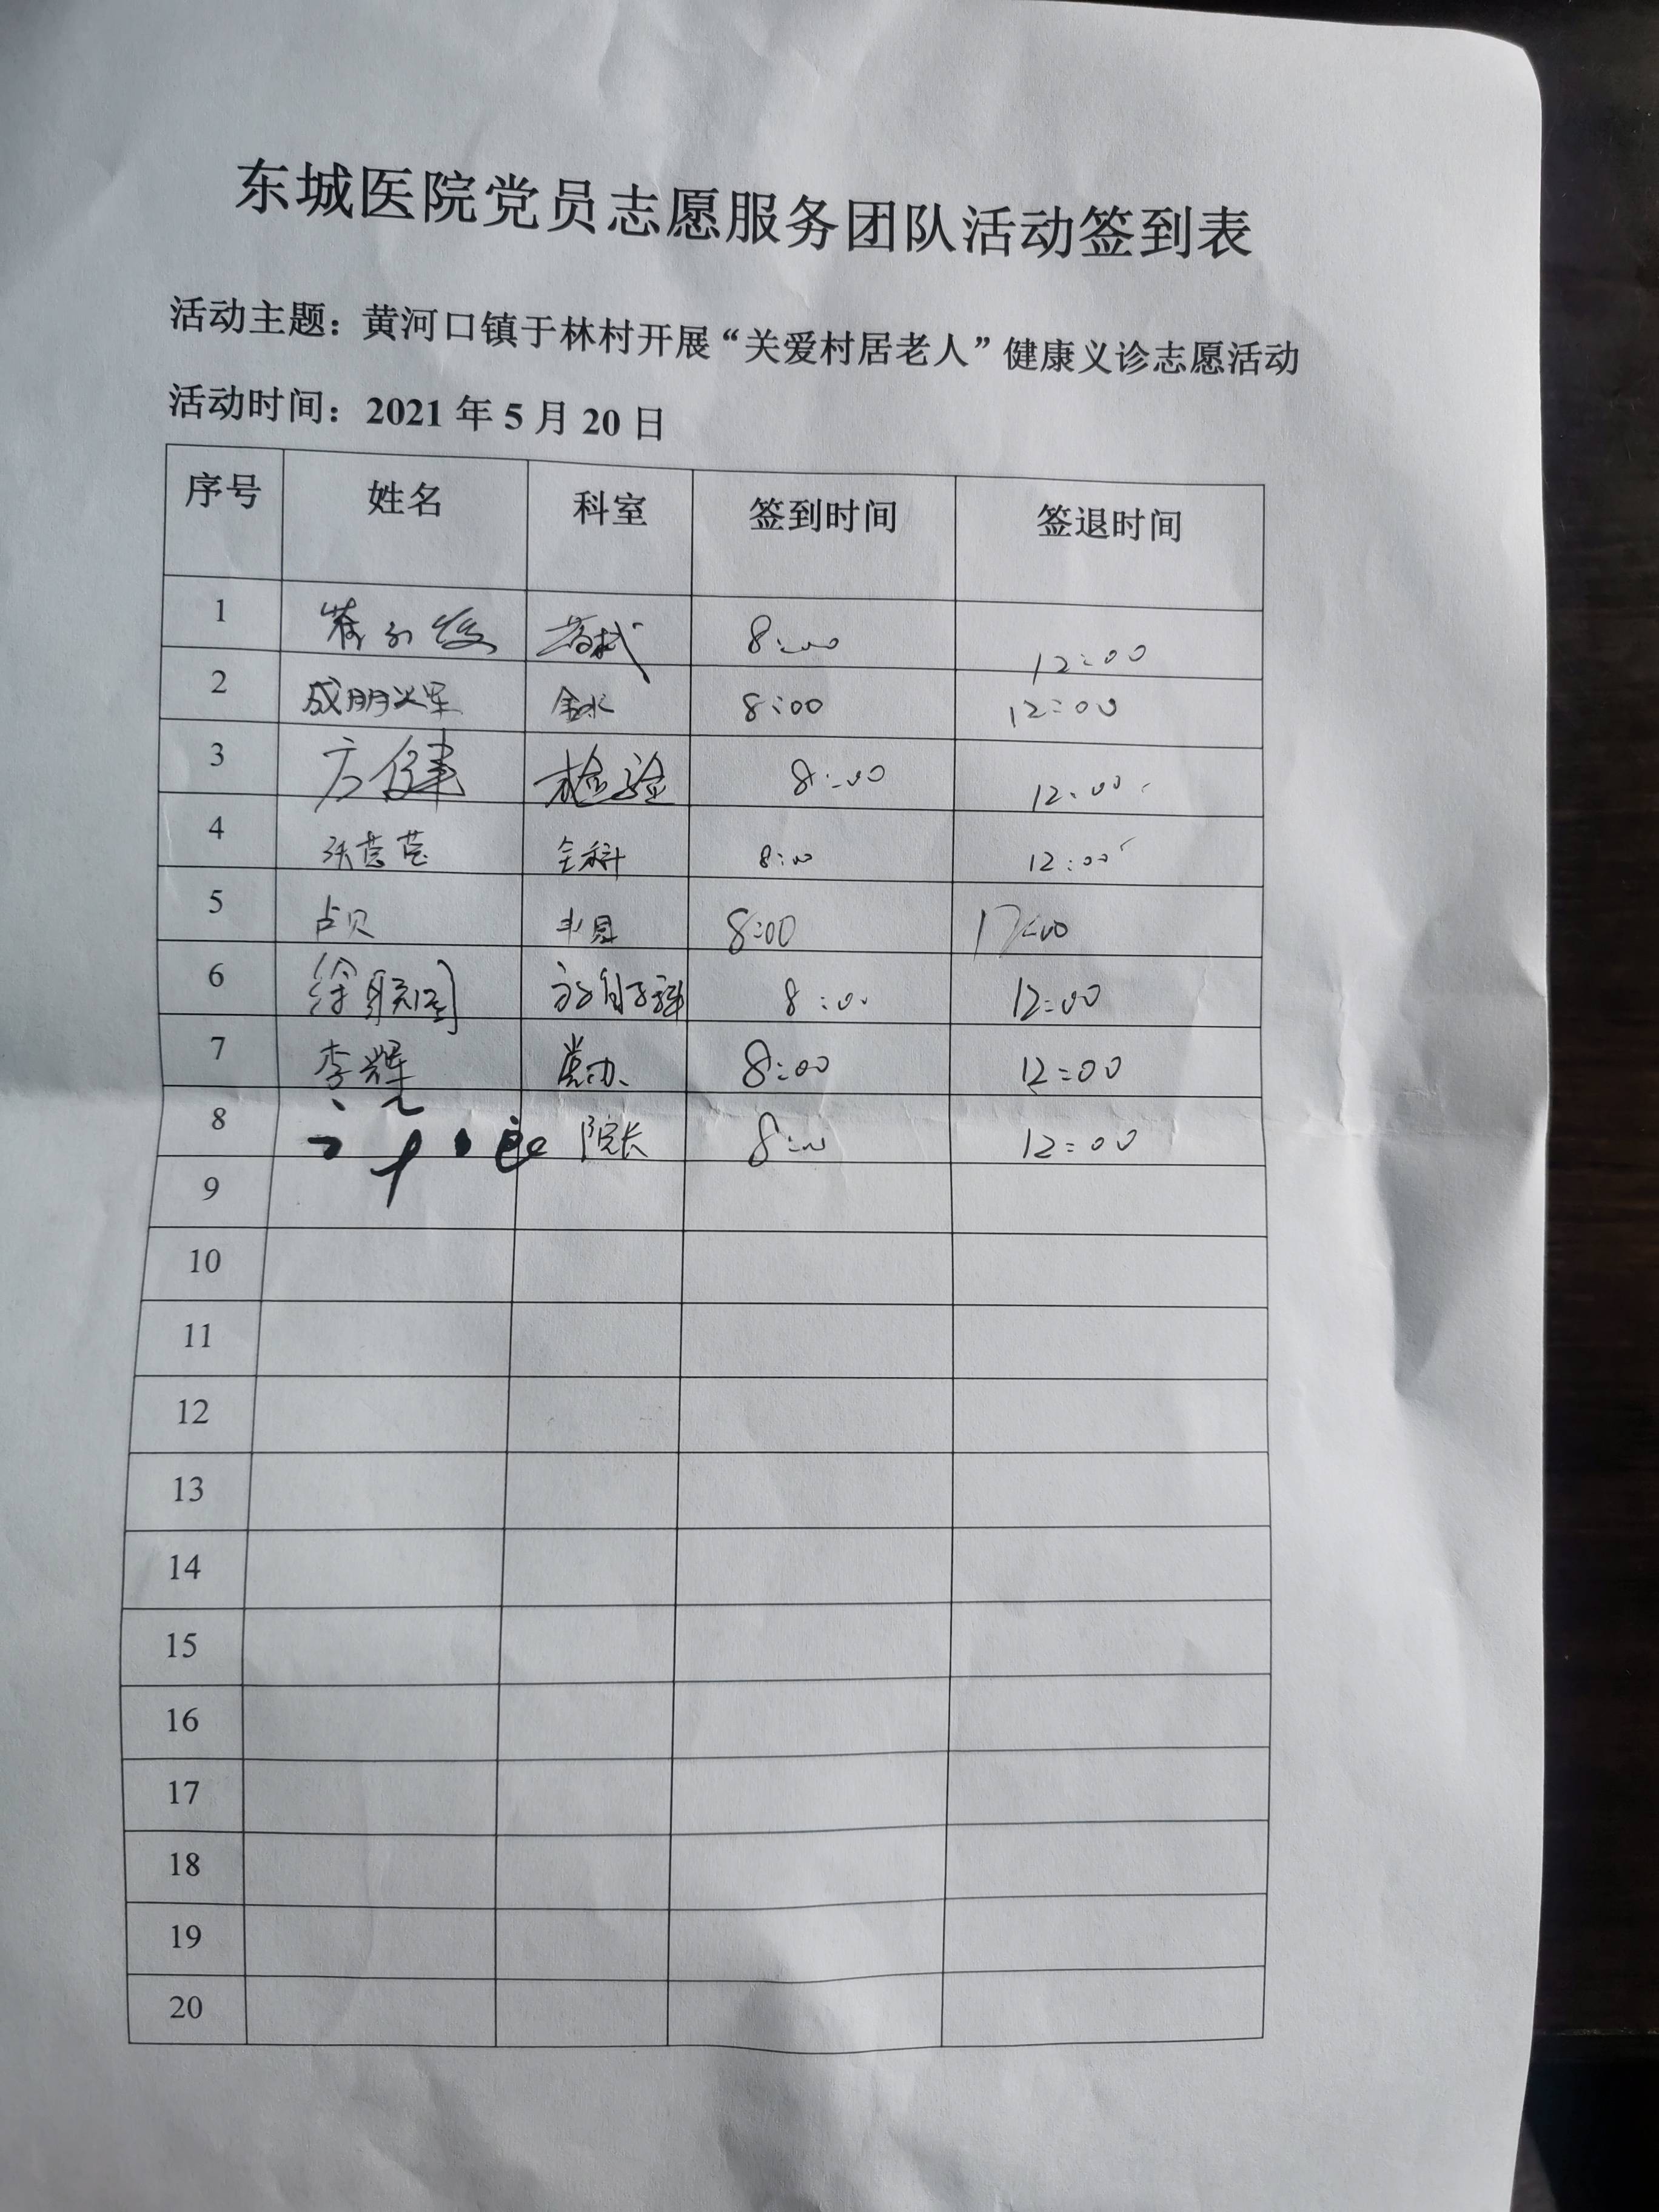 东城医院党员志愿服务团队活动签到表
活动主题：黄河口镇于林村开展“关爱村居老人”健康义诊志愿活动
活动时间：2021年5月20日
序号 姓名 科室 签到时间 签退时间
1 8:00 12:00
2 8:00 12:00
3 方健 检验 8:00 12:00
4 全科 8:00 12:00
5 占贝 8:00 12:00
6 徐 放射科 8:00 12:00
7 李辉 党办 8:00 12:00
8 院长 8:00 12:00
9
10
11
12
13
14
15
16
17
18
19
20